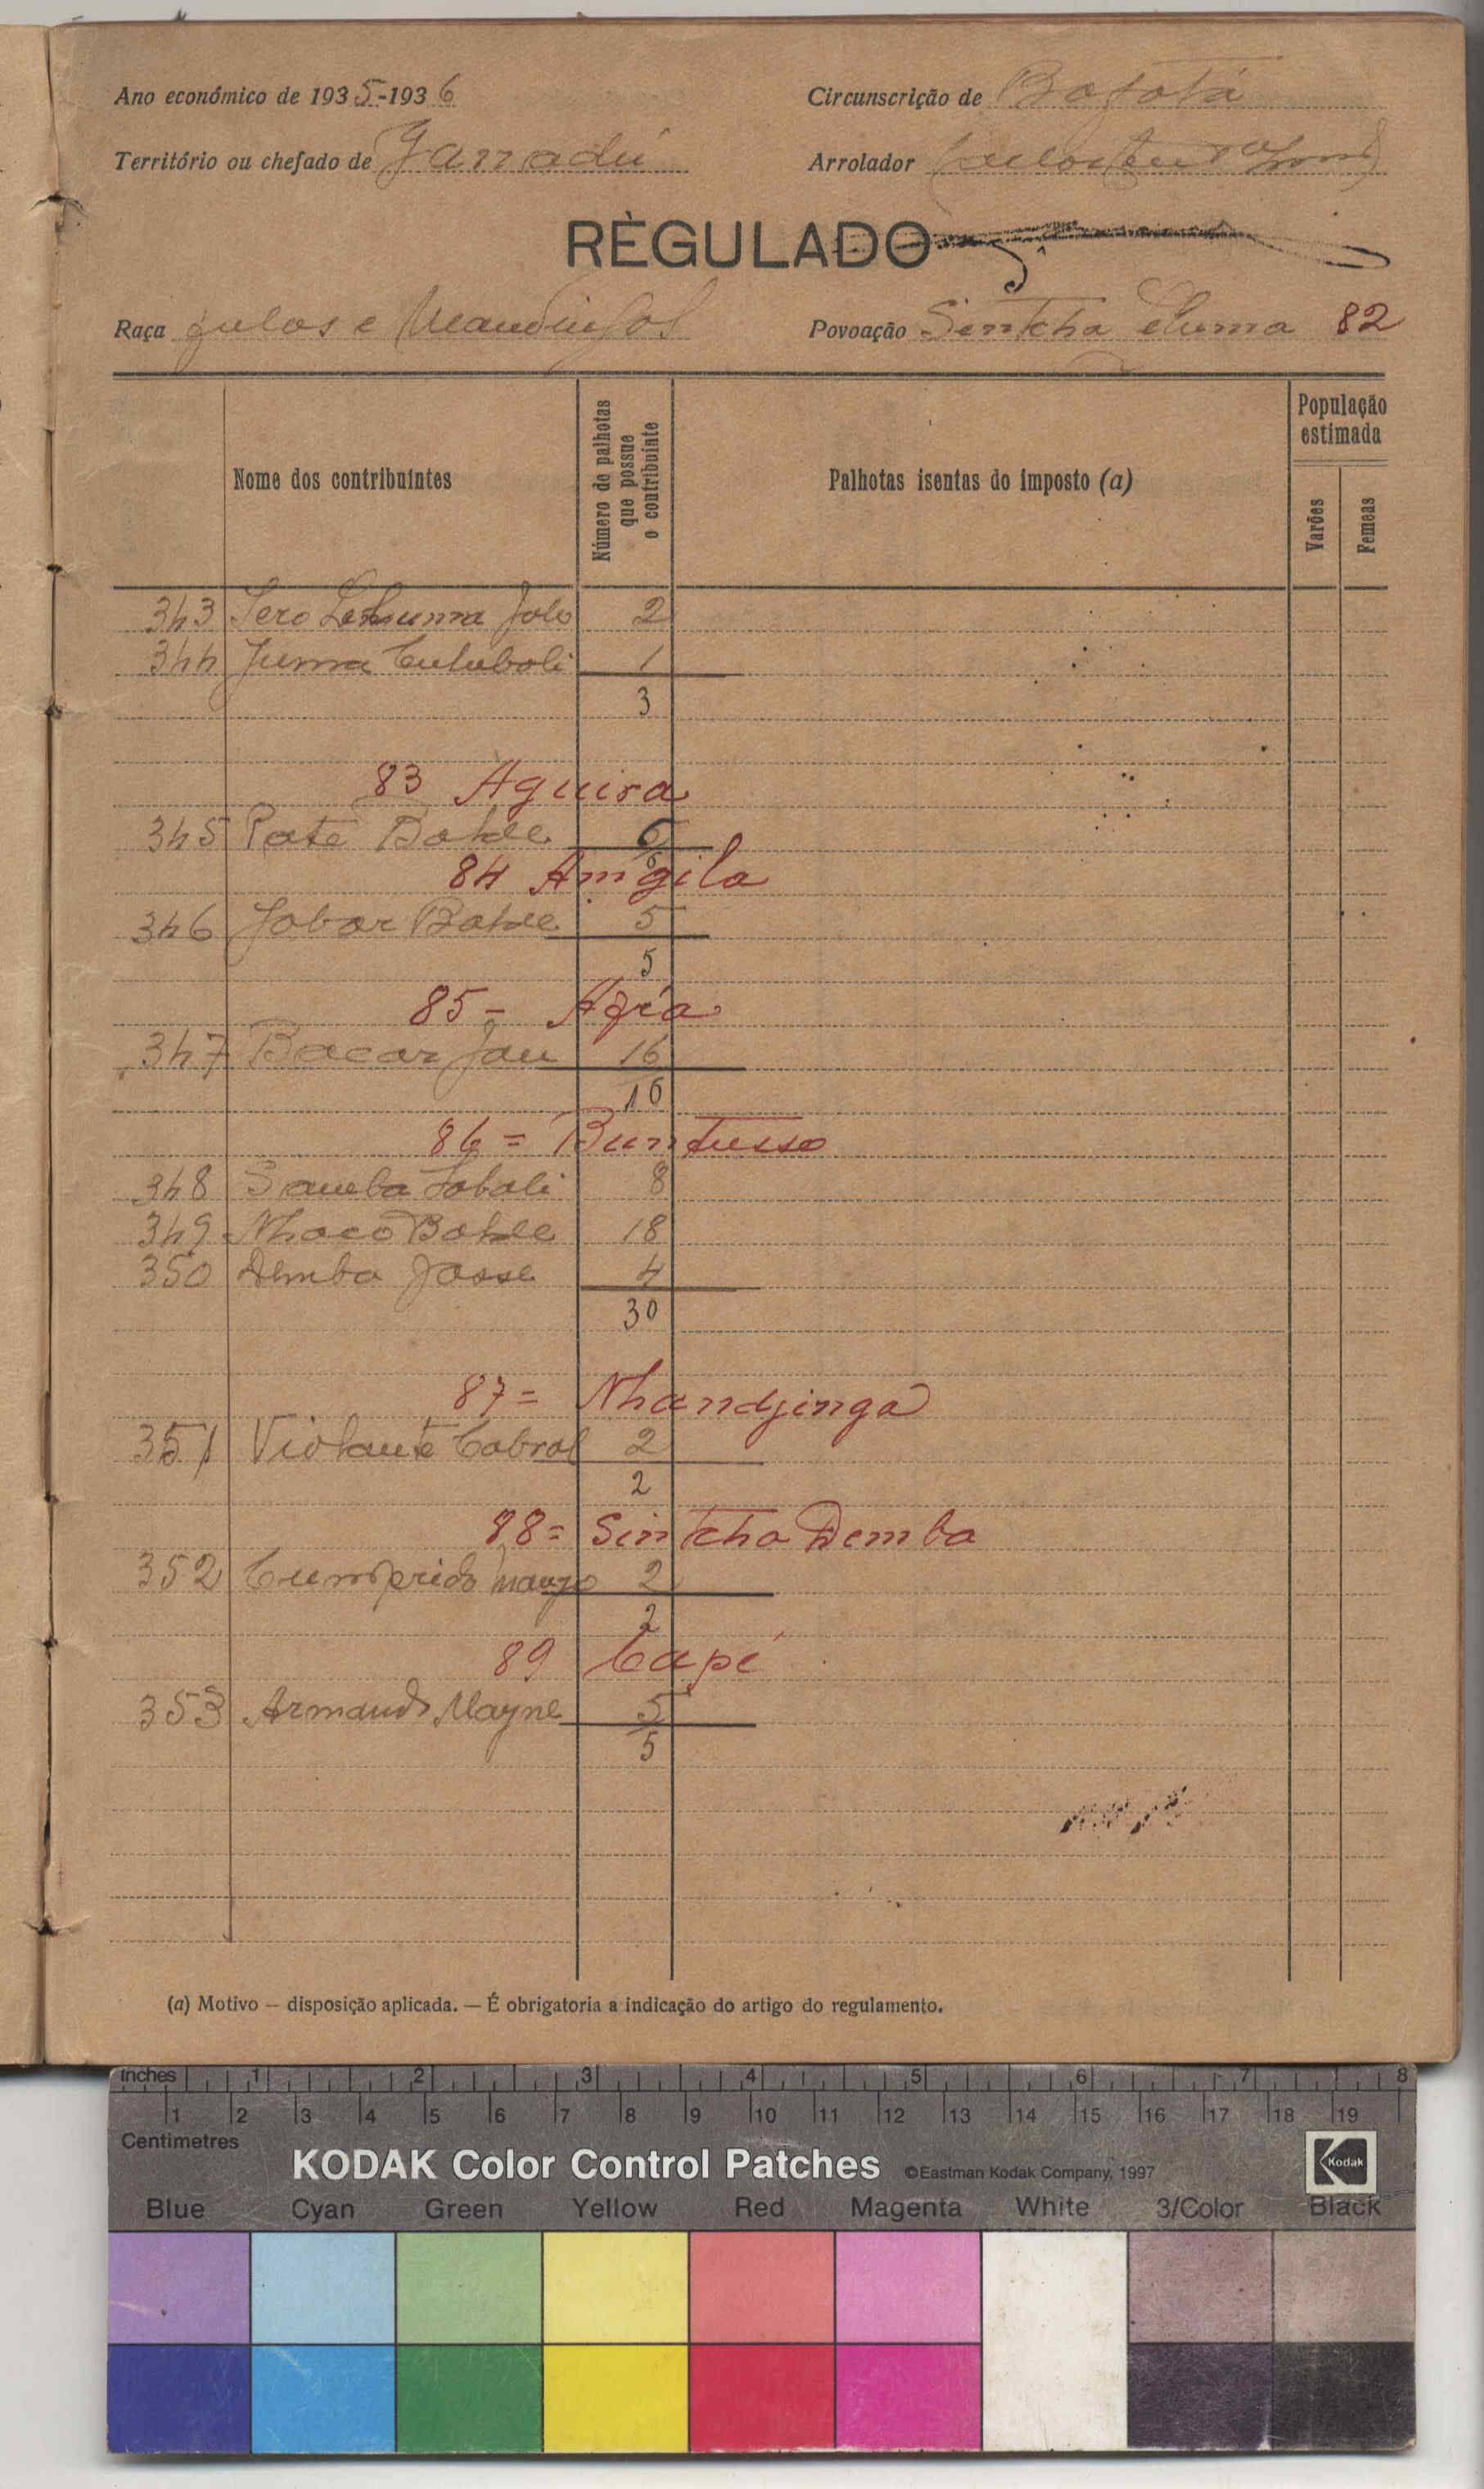 Ano económico de 1935-1936
Circunscrição de Bafatá
Território ou chefado de Janadú
Arrolador
RÈGULADO
Raça fulas e Mandingas
Povoação Sintcha 82
Nome dos contribuintes
Número de palhotas que possue o contribuinte
Palhotas isentas do imposto (a)
População estimada
Varões
Femeas
343 2
344 Juma 1
3
83 Aguira
345 Paté Balde 6
6
84 Amgila
346 Jobar Balde 5
5
85 - Afia
347 Bacar Jau 16
16
86 = Buntusso
348 Samba 8
349 Nhaco Balde 18
350 Demba Jasse 4
30
87 = Nhandjinga
351 Violante Cabral 2
2
88 = Sintcha Demba
352 Cumprido 2
2
89 Capé
353 Armando Mayne 5
5
(a) Motivo — disposição aplicada. — É obrigatoria a indicação do artigo do regulamento.
Inches 1 2 3 4 5 6 7 8
1 2 3 4 5 6 7 8 9 10 11 12 13 14 15 16 17 18 19
Centimetres
KODAK Color Control Patches ©Eastman Kodak Company, 1997 Kodak
Blue Cyan Green Yellow Red Magenta White 3/Color Black